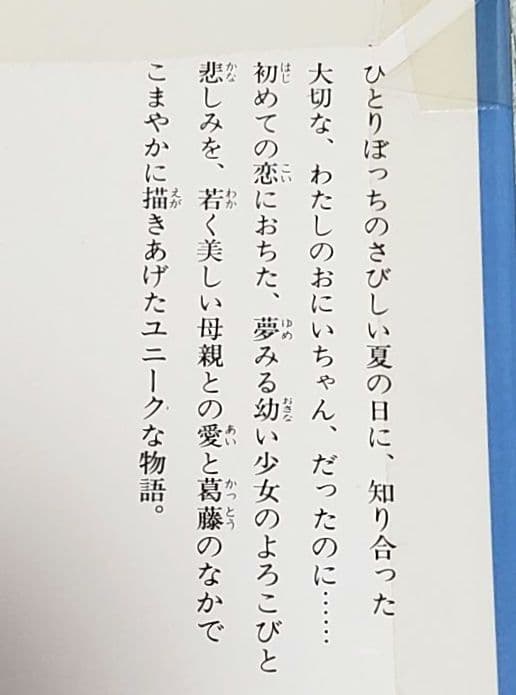 ひとりぼっちのさびしい夏の日に、知り合った
大切な、わたしのおにいちゃん、だったのに……
初めての恋におちた、夢みる幼い少女のよろこびと
悲しみを、若く美しい母親との愛と葛藤のなかで
こまやかに描きあげたユニークな物語。